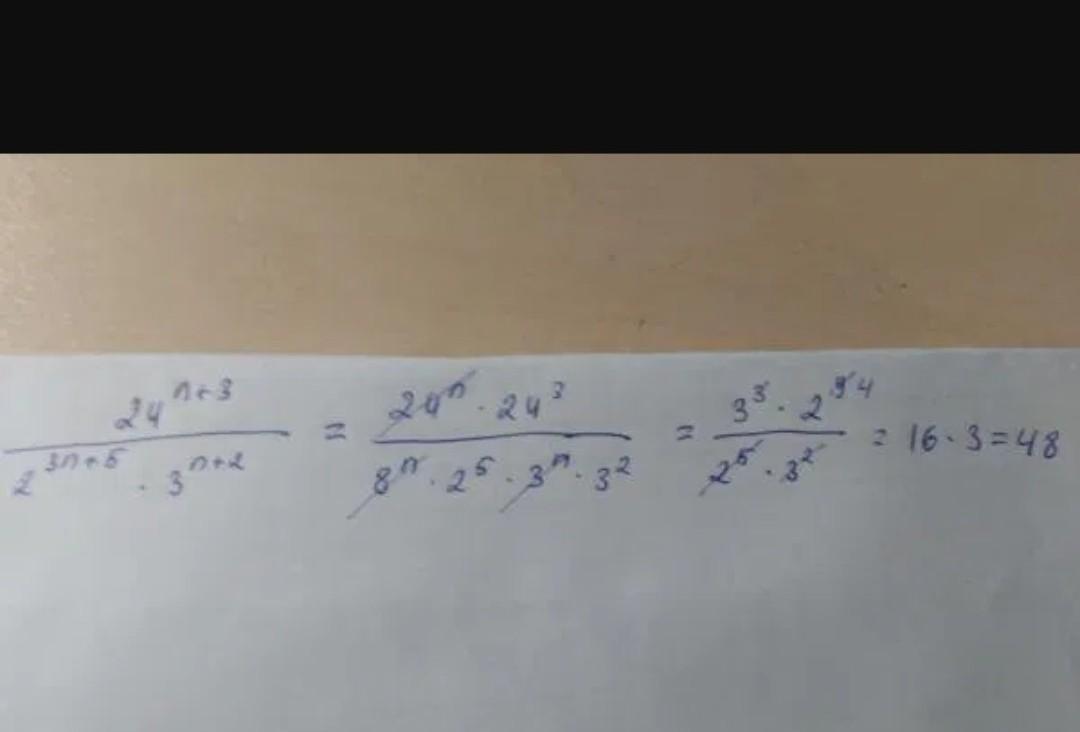 24^{n+3} / (2^{3n+5} · 3^{n+2}) = (24^n · 24^3) / (8^n · 2^5 · 3^n · 3^2) = (3^3 · 2^{9 4}) / (2^5 · 3^2) = 16 · 3 = 48